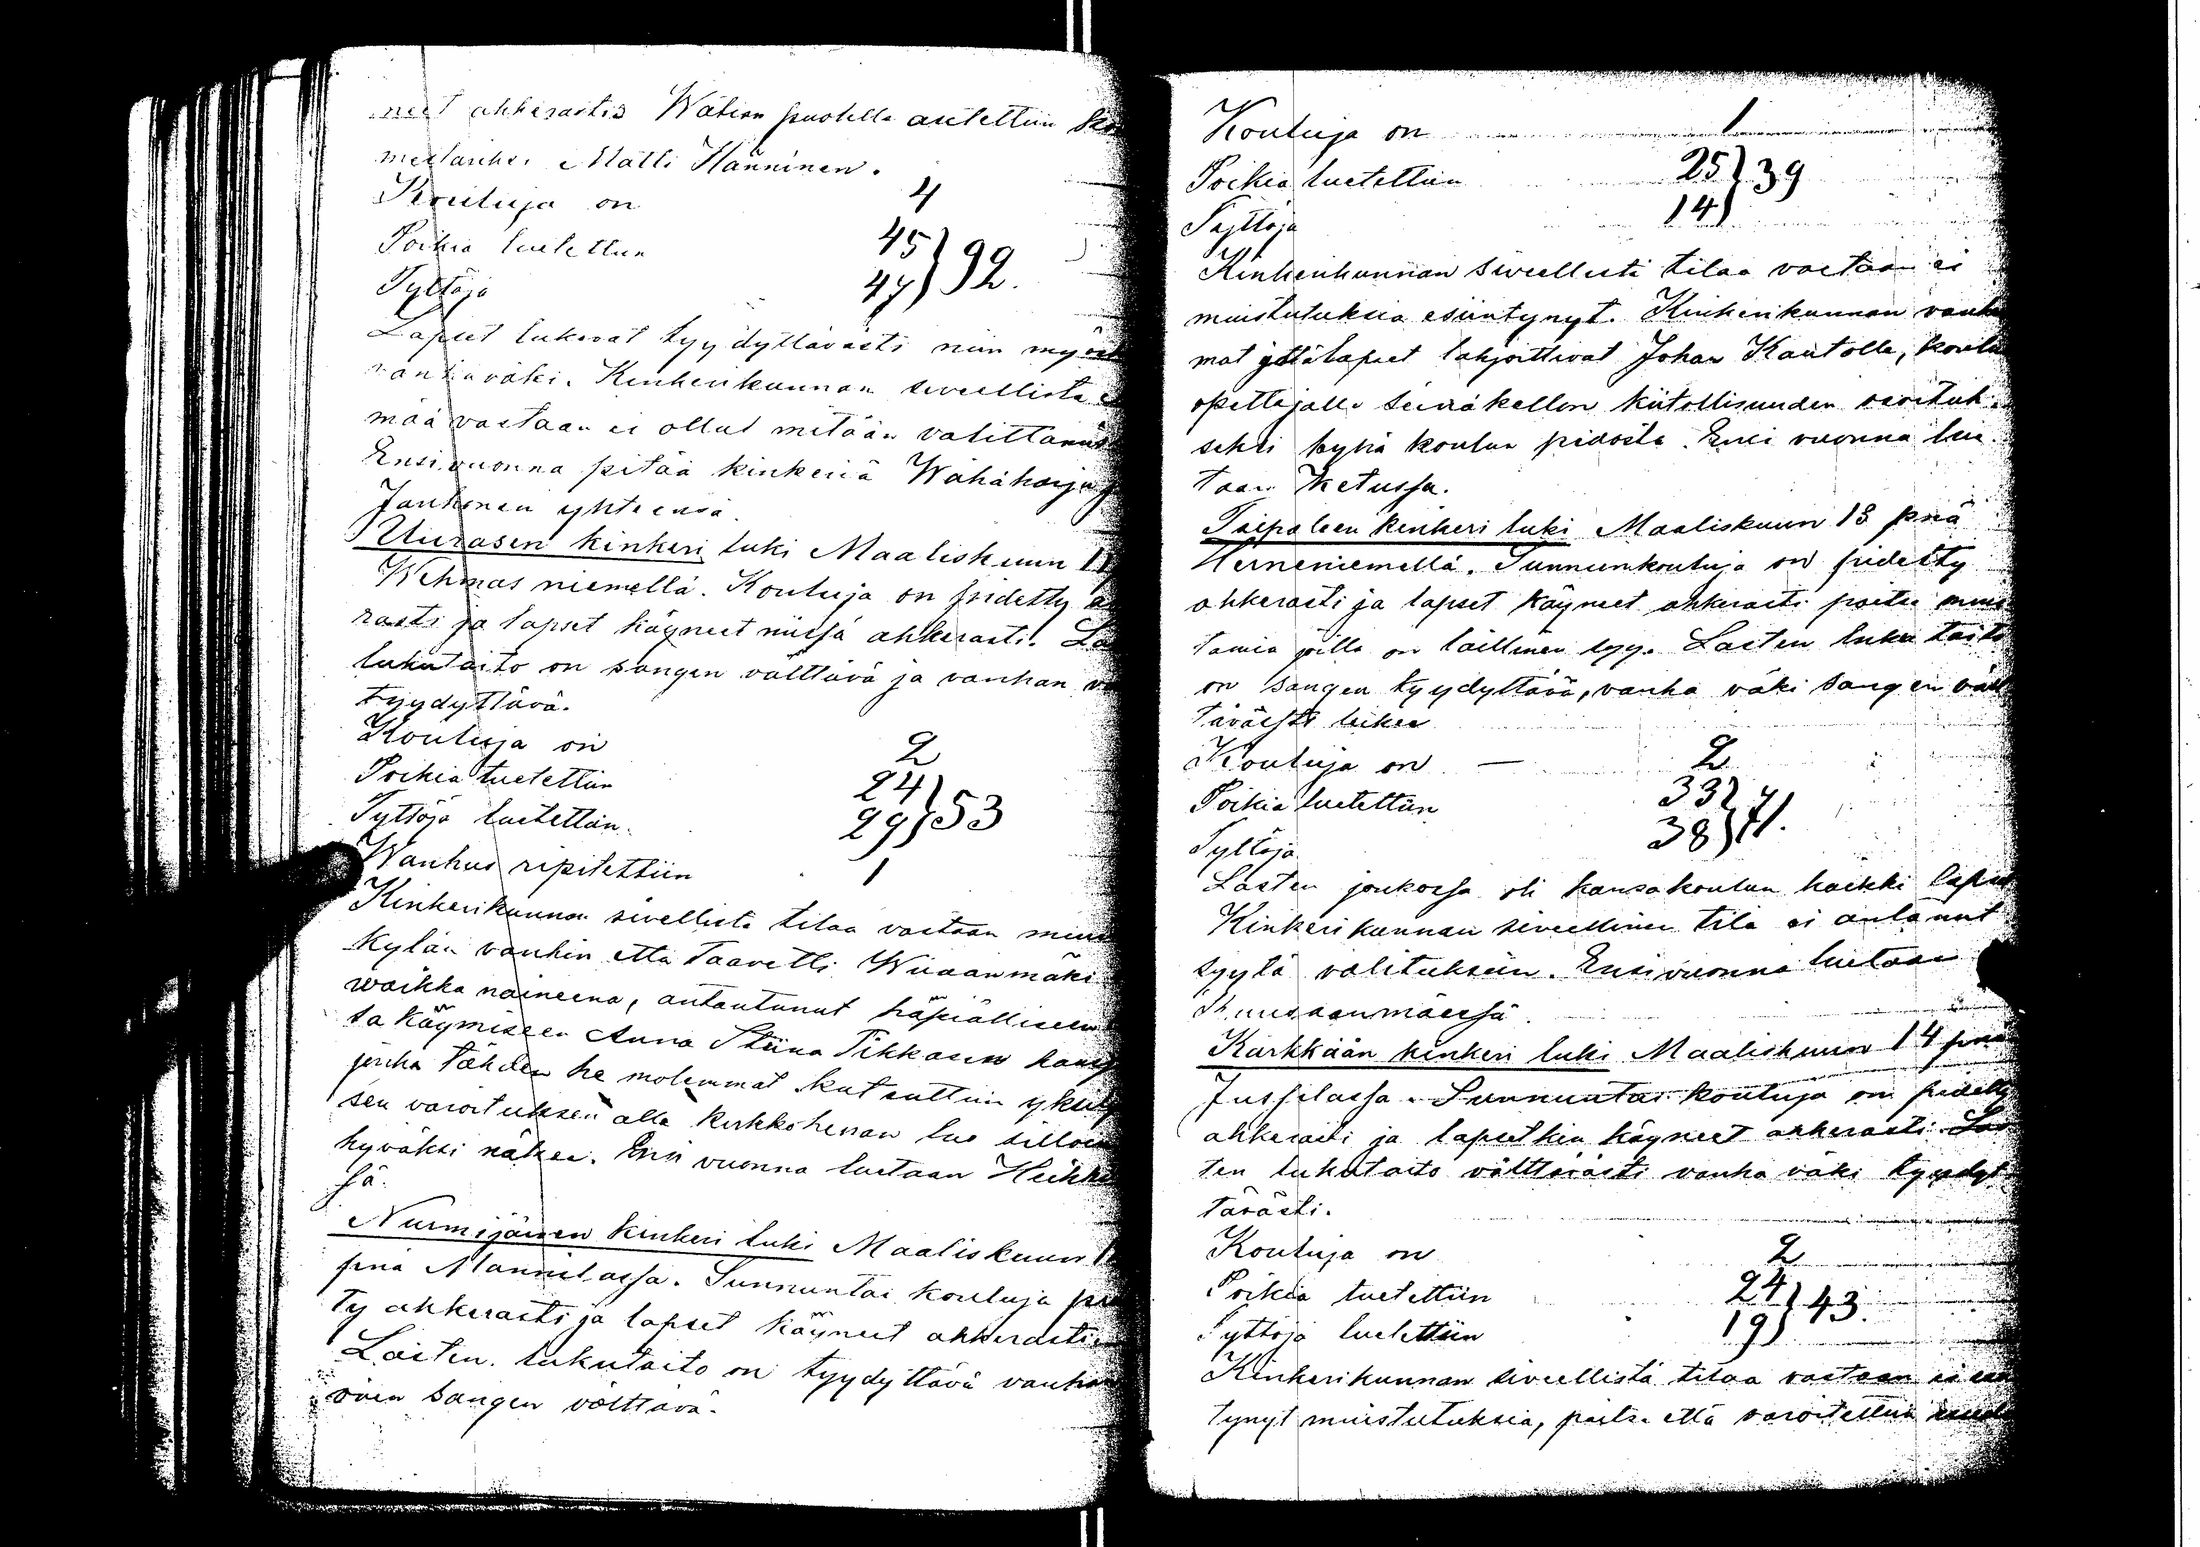 neet ahkerasti. Wätian puolella asetettiin
mestariksi Matti Hänninen.
Kouluja on 4
Poikia luetettiin 45
Tyttöjä 47 } 92.
Lapset lukevat tyydyttävästi niin myös
väki. Kinkerikunnan siveellistä
mää vastaan ei ollut mitään valittamis
Ensi vuonna pitää kinkeriä Wähäharju
Janhonen yhteensä.
Uurasen kinkeri luki Maaliskuun 11
Wehmasniemellä. Kouluja on pidetty
rasti ja lapset käyneet niissä ahkerasti. La
lukutaito on sangen välttävä ja vanhan
tyydyttävä.
Kouluja on 2
Poikia luetettiin 24
Tyttöjä luetettiin 29 } 53
Wanhus ripitettiin 1
Kinkerikunnan sivellistä tilaa vastaan muis
Kylän vanhin että Taavetti Wiiaanmäki
waikka naineena, antautunut häpiälliseen
sa käymiseen Anna Stiina Tikkasen kans
jonka tähden he molemmat kutsuttiin
sen varoituksen alle kirkkoherran luo silloin
hyväksi näkee. Ensi vuonna luetaan Heikki
sä.
Nurmijärven kinkeri luki Maaliskuun 1
pnä Mannilassa. Sunnuntai kouluja
ty ahkerasti ja lapset käyneet ahkerasti
Lasten lukutaito on tyydyttävä vanhan
väen sangen välttävä.
Kouluja on 1
Poikia luetettiin 25 } 39
Tyttöjä 14
Kinkerikunnan siveellistä tilaa vastaan ei
muistutuksia esiintynyt. Kinkerikunnan vanhe
mat ja lapset lahjoittivat Johan Kautolle, koulu
opettajalle seinäkellon kiitollisuuden osoituk
seksi hyvä koulun pidosta. Ensi vuonna lue
taan Ketussa.
Taipaleen kinkeri luki Maaliskuun 13 pnä
Herneniemellä. Sunnunkouluja on pidetty
ahkerasti ja lapset käyneet ahkerasti paitsi muu
tamia joilla on laillinen syy. Lasten luku taito
on sangen tyydyttävä, vanha väki sangen vält
tävästi lukee
Kouluja on — 2
Poikia luetettiin 33
Tyttöjä 38 } 71.
Lasten joukossa oli kansakoulun kaikki lapset
Kinkerikunnan siveellinen tila ei antanut
syytä valituksiin. Ensi vuonna luetaan
Karkkään kinkeri luki Maaliskuun 14 pnä
Jussilassa. Sunnuntai kouluja on pidetty
ahkerasti ja lapsetkin käyneet ahkerasti. Las
ten lukutaito välttävästi vanha väki tyydyt
tävästi.
Kouluja on 2
Poikia luetettiin 24
Tyttöjä luetettiin 19 } 43.
Kinkerikunnan siveellistä tilaa vastaan ei esiin
tynyt muistutuksia, paitsi että varoitettiin